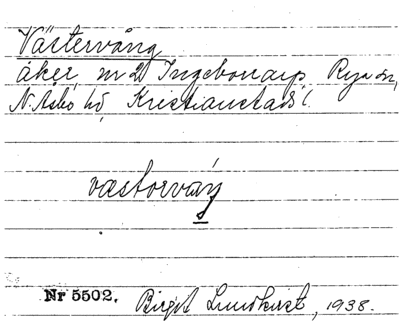 Västervång
åker, nr 2 Ingebonarp Rya sn,
N. Åsbo hd Kristianstads l.
væstorváŋ
Nr 5502. Birgit Lundkvist, 1938.